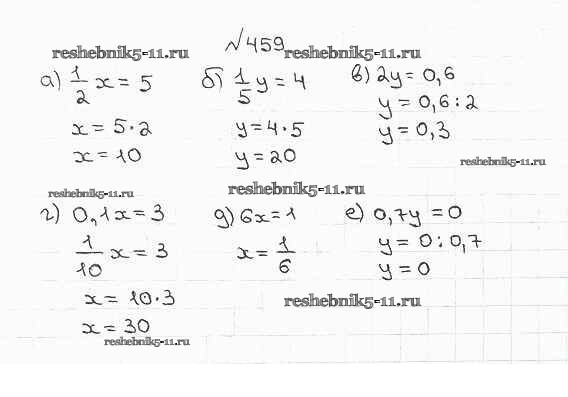 №459
reshebnik5-11.ru reshebnik5-11.ru
а) 1/2 x = 5
x = 5·2
x = 10
б) 1/5 y = 4
y = 4·5
y = 20
в) 2y = 0,6
y = 0,6 : 2
y = 0,3
reshebnik5-11.ru
reshebnik5-11.ru
reshebnik5-11.ru
г) 0,1x = 3
1/10 x = 3
x = 10·3
x = 30
reshebnik5-11.ru
д) 6x = 1
x = 1/6
е) 0,7y = 0
y = 0 : 0,7
y = 0
reshebnik5-11.ru